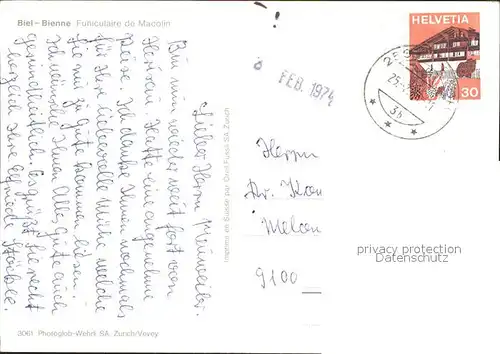 Biel – Bienne Funiculaire de Macolin
Lieber Herr
Bin nun wieder weit fort von
Herisau. Hatte eine angenehme
Reise. Ich danke Ihnen nochmals
für Ihre liebevolle Mühe welche
Sie mir zu gute kommen liessen.
Ich wünsche Ihnen Alles Gute auch
gesundheitlich. Es grüsst Sie recht
herzlich Ihre
Imprimé en Suisse par Orell Füssli SA, Zurich
3061 Photoglob-Wehrli SA, Zurich/Vevey
FEB. 1974
HELVETIA
30
3b
Herrn
Dr.
9100
privacy protection
Datenschutz